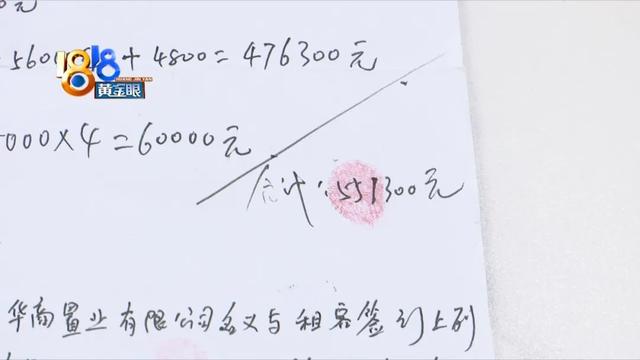 元
560 + 4800 = 476300元
000×4=60000元
合计:551300元
华商置业有限公司名义与租客签订上列
1818
黄金眼